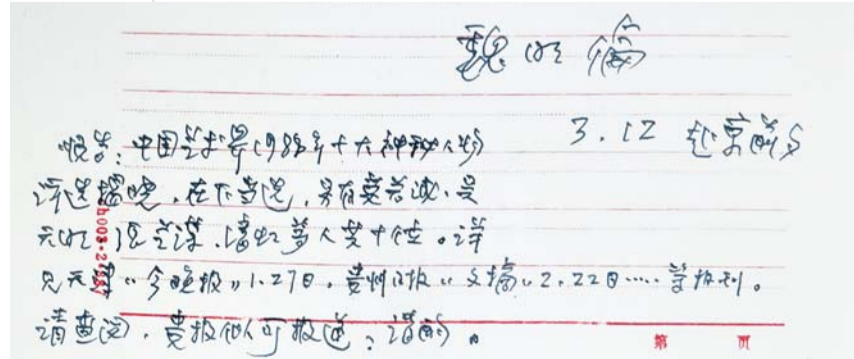 魏明伦
3.12 赴京前夕
悦告:中国艺术界1988年十大神秘人物
评选揭晓,在下当选,另有莫若诚、吴
天明、张艺谋、等人共十位。详
见天津《今晚报》1.27日,贵州日报《文摘》2.22日……等报刊。
请查阅,贵报似可报道,请酌。
第 页